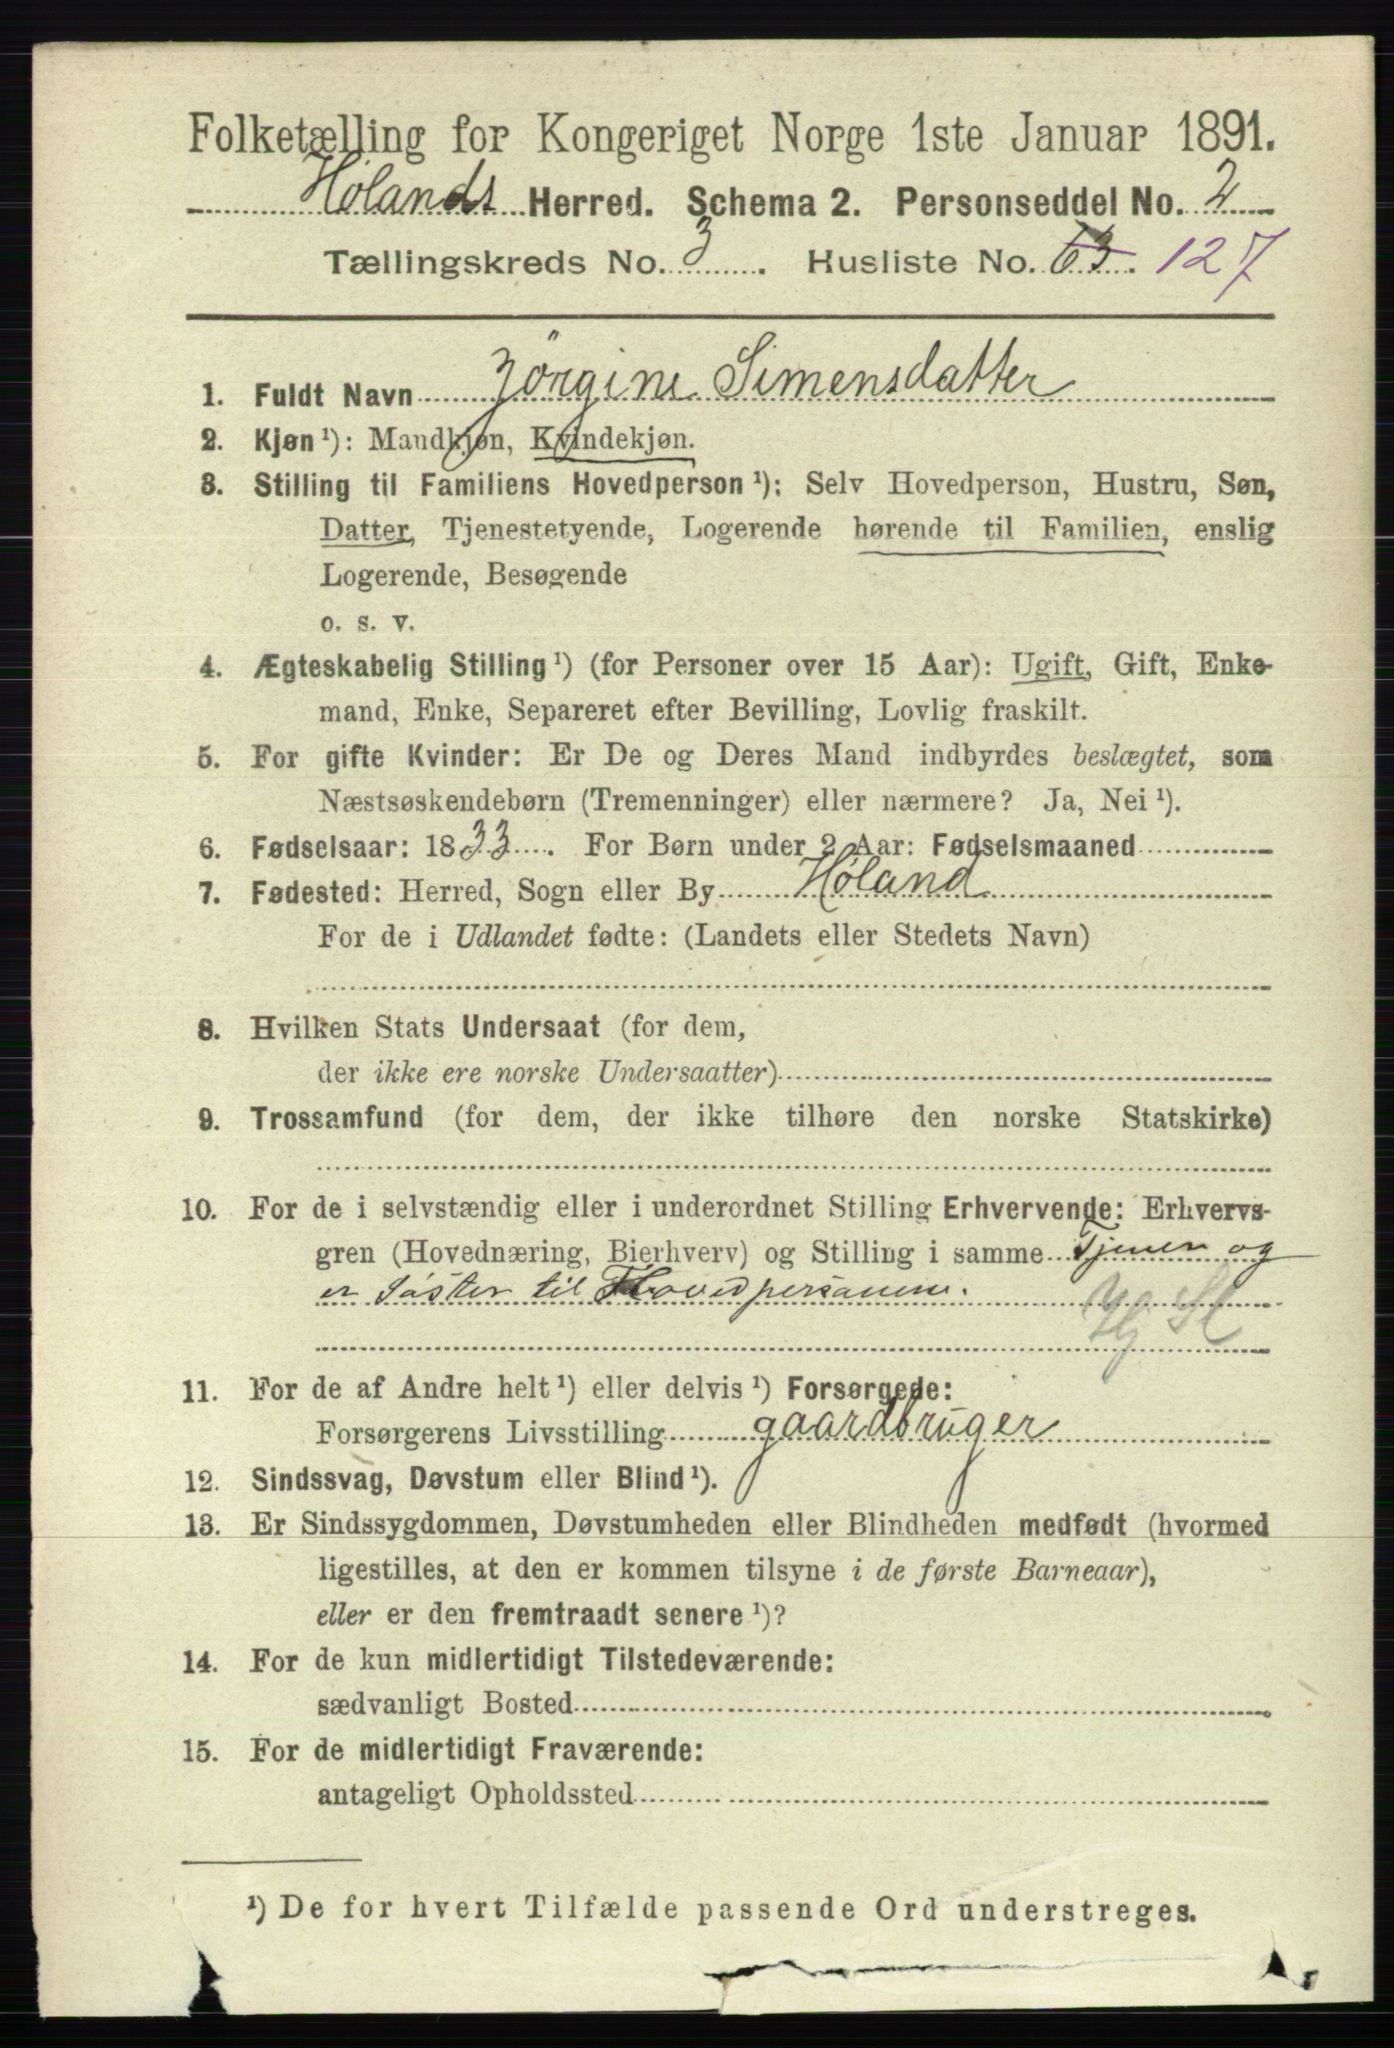 Folketælling for Kongeriget Norge 1ste Januar 1891.
Hølands Herred. Schema 2. Personseddel No. 2
Tællingskreds No. 3. Husliste No. 63. 127
1. Fuldt Navn Jörgine Simensdatter
2. Kjøn ¹): Mandkjøn, Kvindekjøn.
3. Stilling til Familiens Hovedperson ¹): Selv Hovedperson, Hustru, Søn,
Datter, Tjenestetyende, Logerende hørende til Familien, enslig
Logerende, Besøgende
o. s. v.
4. Ægteskabelig Stilling ¹) (for Personer over 15 Aar): Ugift, Gift, Enke-
mand, Enke, Separeret efter Bevilling, Lovlig fraskilt.
5. For gifte Kvinder: Er De og Deres Mand indbyrdes beslægtet, som
Næstsøskendebørn (Tremenninger) eller nærmere? Ja, Nei ¹).
6. Fødselsaar: 1833. For Børn under 2 Aar: Fødselsmaaned
7. Fødested: Herred, Sogn eller By Høland
For de i Udlandet fødte: (Landets eller Stedets Navn)
8. Hvilken Stats Undersaat (for dem,
der ikke ere norske Undersaatter)
9. Trossamfund (for dem, der ikke tilhøre den norske Statskirke)
10. For de i selvstændig eller i underordnet Stilling Erhvervende: Erhvervs-
gren (Hovednæring, Bierhverv) og Stilling i samme Tjener og
er Söster til Hovedpersonen.
11. For de af Andre helt ¹) eller delvis ¹) Forsørgede:
Forsørgerens Livsstilling gaardbruger
12. Sindssvag, Døvstum eller Blind ¹).
13. Er Sindssygdommen, Døvstumheden eller Blindheden medfødt (hvormed
ligestilles, at den er kommen tilsyne i de første Barneaar),
eller er den fremtraadt senere ¹)?
14. For de kun midlertidigt Tilstedeværende:
sædvanligt Bosted
15. For de midlertidigt Fraværende:
antageligt Opholdssted
¹) De for hvert Tilfælde passende Ord understreges.